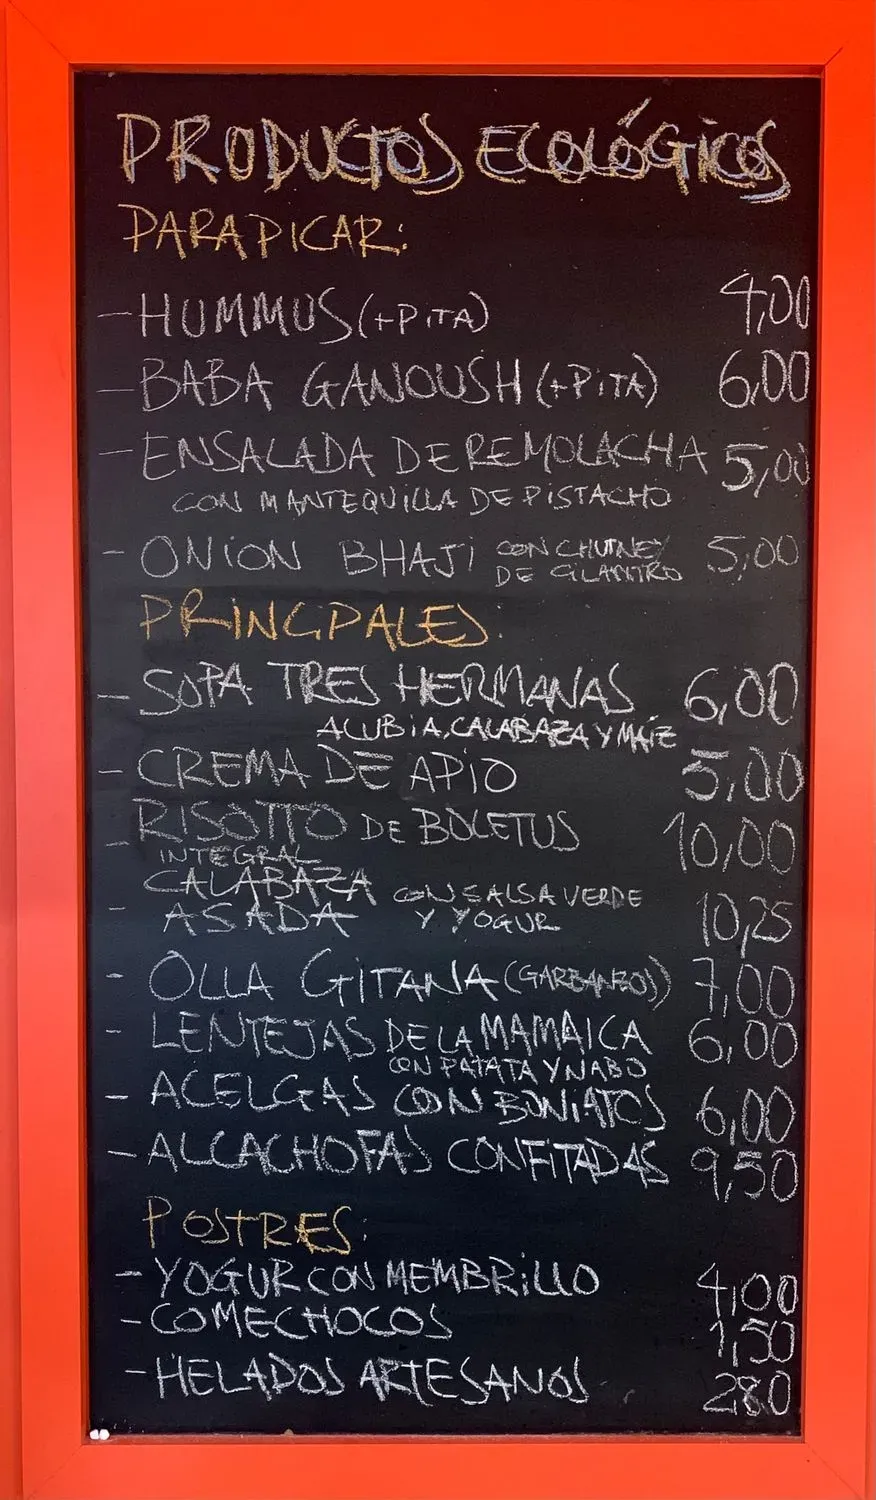 PRODUCTOS ECOLÓGICOS
PARA PICAR:
- HUMMUS (+PITA) 4,00
- BABA GANOUSH (+PITA) 6,00
- ENSALADA DE REMOLACHA 5,00
CON MANTEQUILLA DE PISTACHO
- ONION BHAJI CON CHUTNEY 5,00
DE CILANTRO
PRINCIPALES:
- SOPA TRES HERMANAS 6,00
ALUBIA, CALABAZA Y MAÍZ
- CREMA DE APIO 5,00
- RISOTTO DE BOLETUS 10,00
INTEGRAL
- CALABAZA CON SALSA VERDE
ASADA Y YOGUR 10,25
- OLLA GITANA (GARBANZOS) 7,00
- LENTEJAS DE LA MAMAICA 6,00
CON PATATA Y NABO
- ACELGAS CON BONIATOS 6,00
- ALCACHOFAS CONFITADAS 9,50
POSTRES:
- YOGUR CON MEMBRILLO 4,00
- COMECHOCOS 1,50
- HELADOS ARTESANOS 2,80